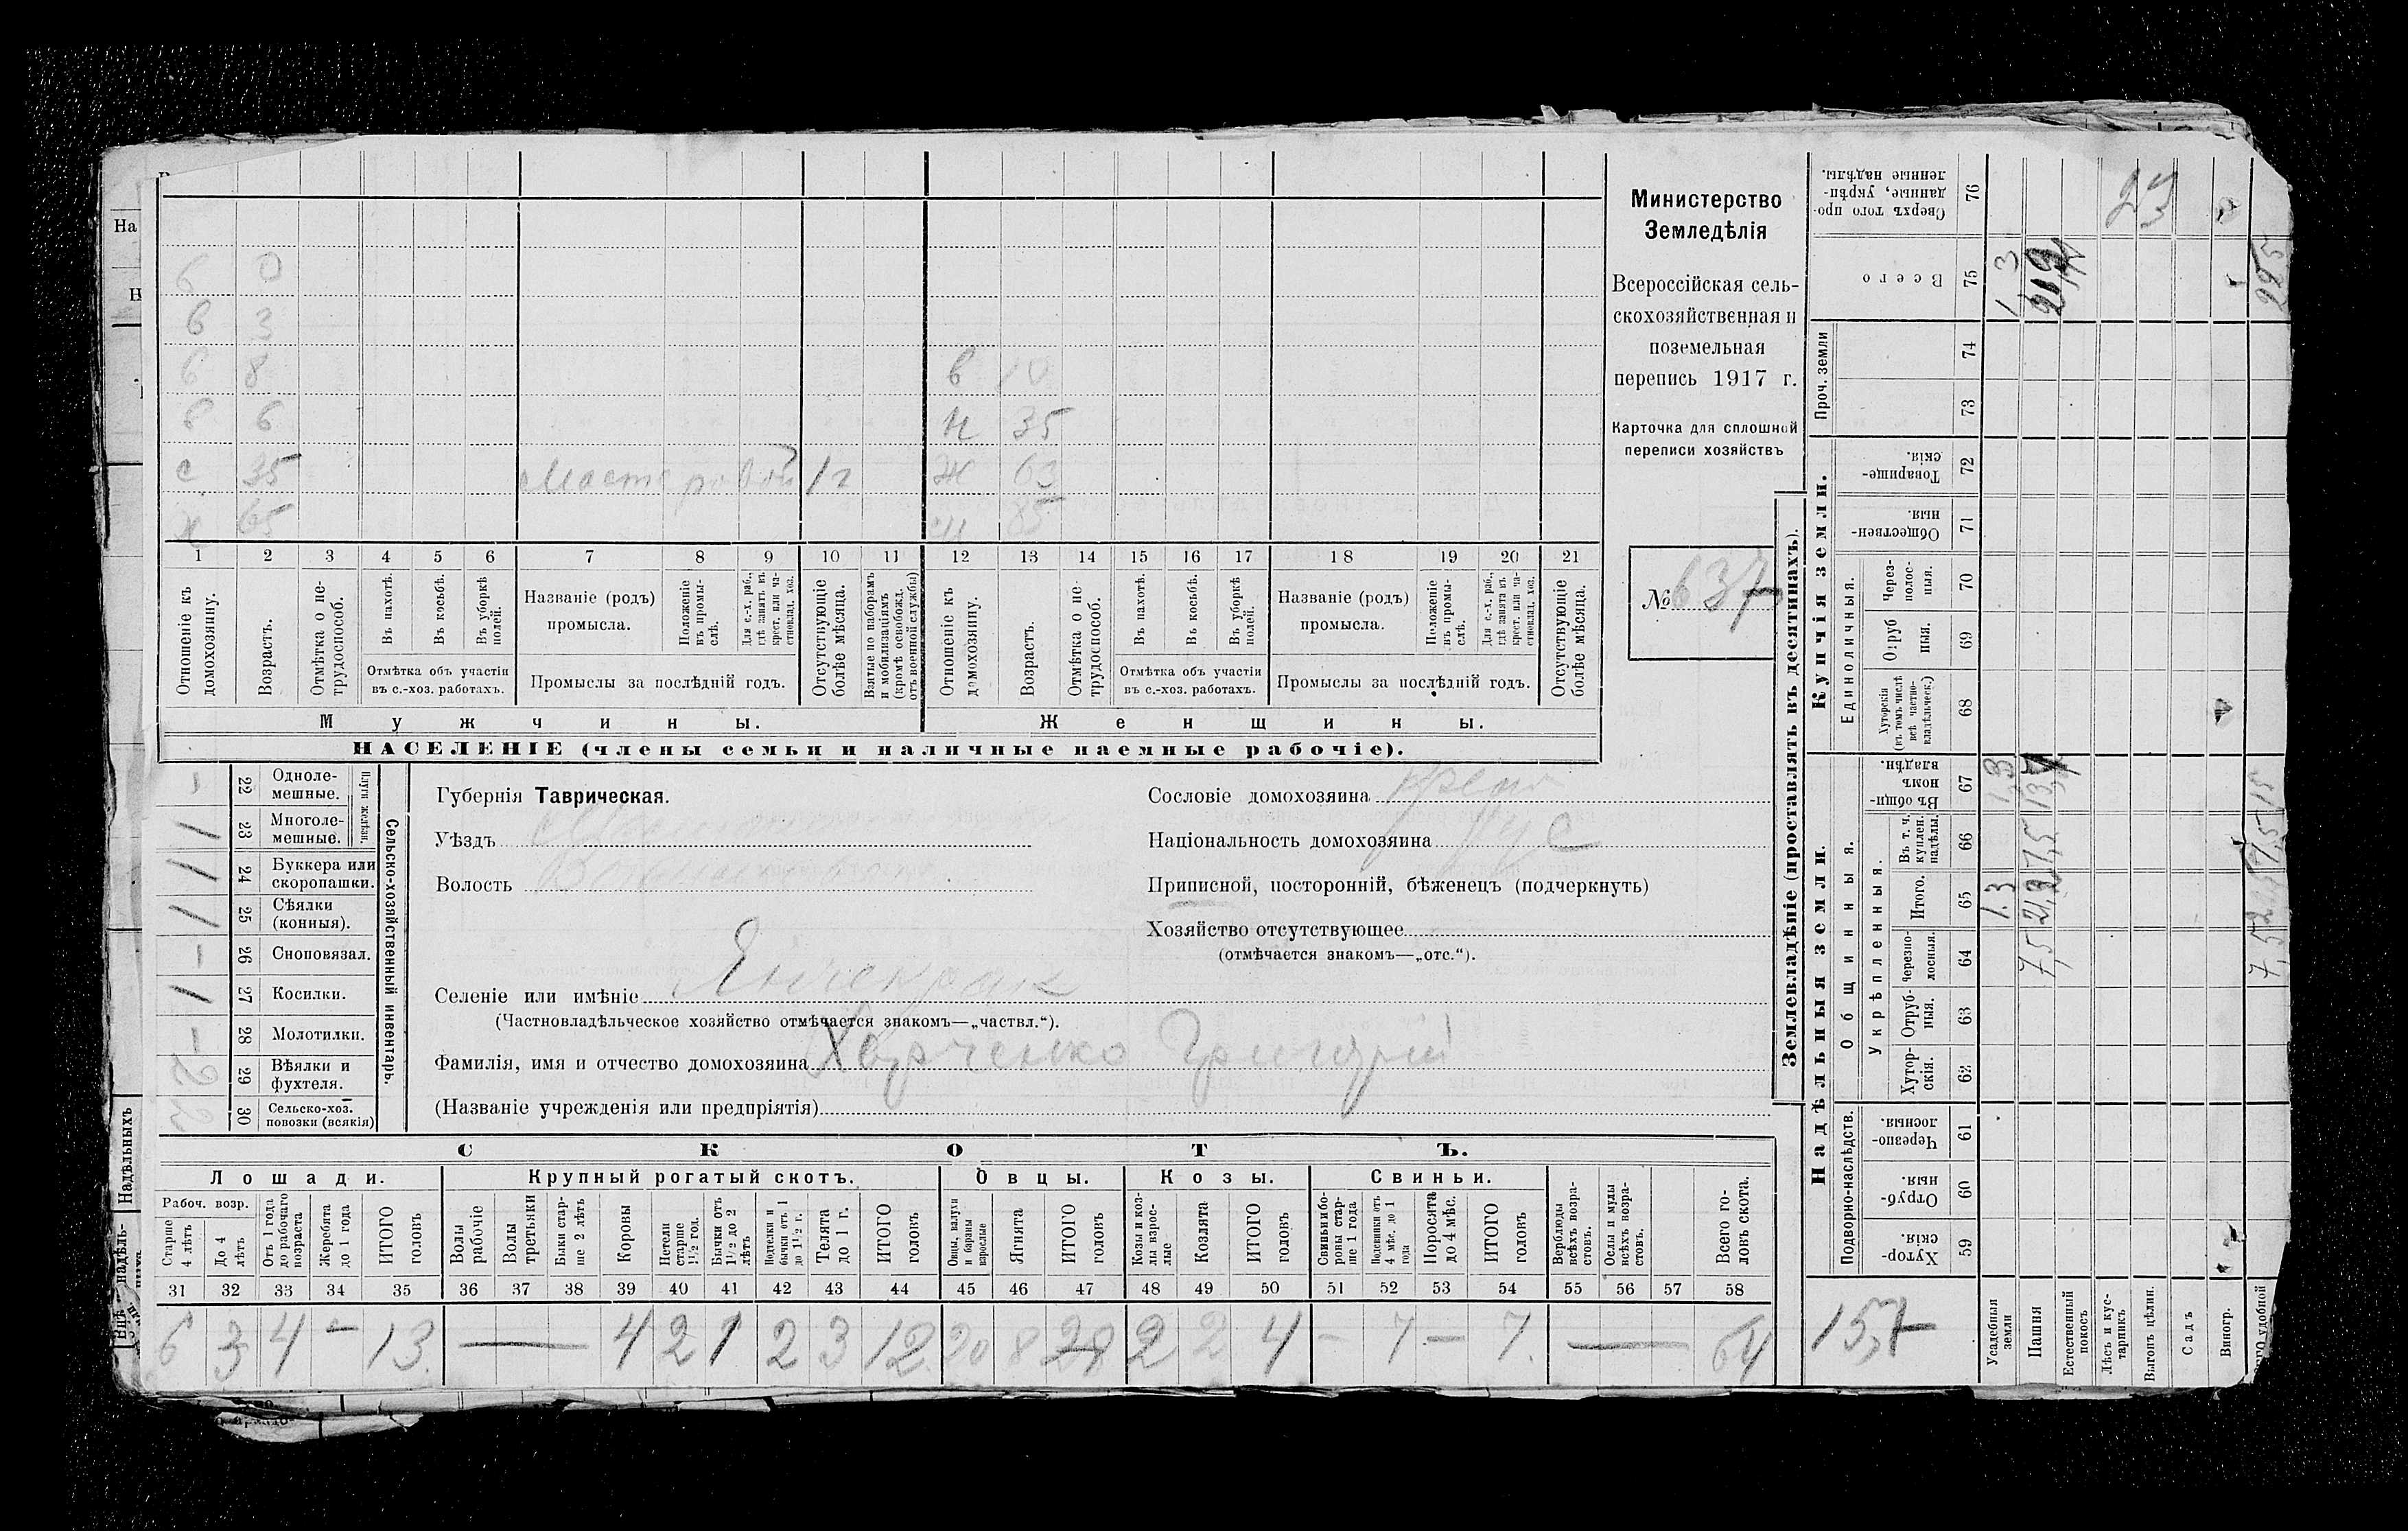 б 0
в 3
б 8 в 10
в 6 н 35
с 35 Мест рабоч 1 г ж 63
х 65 н 85
1 2 3 4 5 6 7 8 9 10 11 12 13 14 15 16 17 18 19 20 21
Отношеніе къ домохозяину.
Возрастъ.
Отмѣтка о не-трудоспособ.
Въ пахотѣ.
Въ косьбѣ.
Въ уборкѣ полей.
Отмѣтка объ участіи въ с.-хоз. работахъ.
Названіе (родъ) промысла.
Положеніе въ промы-слѣ.
Для с.-х. раб., гдѣ занятъ въ крест. или ча-стновлад. хоз.
Промыслы за послѣдній годъ.
Отсутствующіе болѣе мѣсяца.
Взятые по наборамъ и мобилизаціямъ (кромѣ освобожд. отъ военной службы)
Отношеніе къ домохозяину.
Возрастъ.
Отмѣтка о не-трудоспособ.
Въ пахотѣ.
Въ косьбѣ.
Въ уборкѣ полей.
Отмѣтка объ участіи въ с.-хоз. работахъ.
Названіе (родъ) промысла.
Положеніе въ промы-слѣ.
Для с.-х. раб., гдѣ занята въ крест. или ча-стновлад. хоз.
Промыслы за послѣдній годъ.
Отсутствующіе болѣе мѣсяца.
Мужчины. Женщины.
НАСЕЛЕНІЕ (члены семьи и наличные наемные рабочіе).
Министерство
Земледѣлія
Всероссійская сель-
скохозяйственная и
поземельная
перепись 1917 г.
Карточка для сплошной
переписи хозяйствъ
№ 637
Сельско-хозяйственный инвентарь.
Плуги желѣзн.
22 Одноле-мешные. -
23 Многоле-мешные. 1
24 Буккера или скоропашки. 1
25 Сѣялки (конныя). 1
26 Сноповязал. -
27 Косилки. 1
28 Молотилки. -
29 Вѣялки и фухтеля. 2
30 Сельско-хоз. повозки (всякія) 2
Губернія Таврическая.
Уѣздъ
Волость
Селеніе или имѣніе Янчекрак
(Частновладѣльческое хозяйство отмѣчается знакомъ—„частвл.“).
Фамилія, имя и отчество домохозяина Харченко Григорій
(Названіе учрежденія или предпріятія)
Сословіе домохозяина крест
Національность домохозяина рус
Приписной, посторонній, бѣженецъ (подчеркнуть)
Хозяйство отсутствующее
(отмѣчается знакомъ—„отс.“).
СКОТЪ.
Лошади. Крупный рогатый скотъ. Овцы. Козы. Свиньи.
Рабоч. возр.
Старше 4 лѣтъ
До 4 лѣтъ
Отъ 1 года до рабочаго возраста
Жеребята до 1 года
ИТОГО головъ
Волы рабочіе
Волы третьяки
Быки стар-ше 2 лѣтъ
Коровы
Нетели старше 1½ год.
Бычки отъ 1½ до 2 лѣтъ
Подтелки и бычки отъ 1 до 1½ г.
Телята до 1 г.
ИТОГО головъ
Овцы, валухи и бараны взрослые
Ягнята
ИТОГО головъ
Козы и коз-лы взрос-лые
Козлята
ИТОГО головъ
Свиньи и бо-ровы стар-ше 1 года
Подсвинки отъ 4 мѣс. до 1 года
Поросята до 4 мѣс.
ИТОГО головъ
Верблюды всѣхъ возра-стовъ.
Ослы и мулы всѣхъ возра-стовъ.
Всего го-ловъ скота.
31 32 33 34 35 36 37 38 39 40 41 42 43 44 45 46 47 48 49 50 51 52 53 54 55 56 57 58
6 3 4 - 13. — 4 2 1 2 3 12 20 8 28 2 2 4 - 7 - 7. — 64
Землевладѣніе (проставлять въ десятинахъ).
Купчія земли.
Надѣльныя земли.
Сверхъ того про-данные, укрѣп-ленные надѣлы. 76
Всего 75
Проч. земли 74 73
Товарище-скія. 72
Обществен-ныя. 71
Единоличныя.
Через-полос-ныя. 70
Отруб ныя. 69
Хуторскія (въ томъ числѣ всѣ частно-владѣльческ.) 68
Общинныя.
Въ общи-номъ владѣн. 67
Укрѣпленныя.
Въ т. ч. куплен. надѣлы. 66
Итого. 65
Черезпо-лосныя. 64
Отруб-ныя. 63
Хутор-скія. 62
Подворно-наслѣдств.
Черезпо-лосныя. 61
Отруб-ныя. 60
Хутор-скія. 59
Усадебныя земли
Пашня
Естественный покосъ
Лѣсъ и кус-тарникъ
Выгонъ цѣлин.
Садъ
Виногр.
удобной
1,3
1,3
1.3
7,5
7,5
7,5
15
225
23
Надѣльныхъ